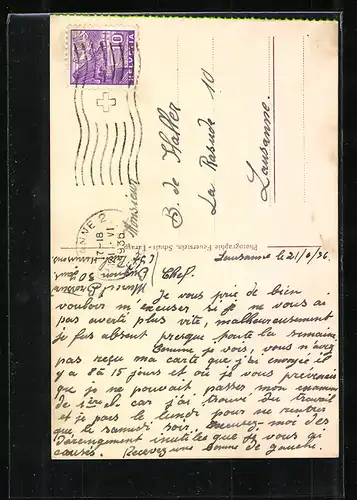 HELVETIA
10
Monsieur
B. de Haller
La Rasude 10
Lausanne.
Photographie Feuerstein, Schuls-Tarasp
Lausanne le 21/6/36
Chef.
Je vous prie de bien
vouloir m'excuser si je ne vous ai
pas averti plus vite, malheureusement
je fus absent presque toute la semaine
Comme je vois, vous n'avez
pas reçu ma carte que j'ai envoyée il
y a 8 à 15 jours et où je vous prévenais
que je ne pouvait passer mon examen
de 1ère cl. car j'ai trouvé du travail
et je pars le lundi pour ne rentrer
que le samedi soir. Excusez-moi des
dérangement inutiles que je vous ai
causés. Recevez une bonne de gauche.